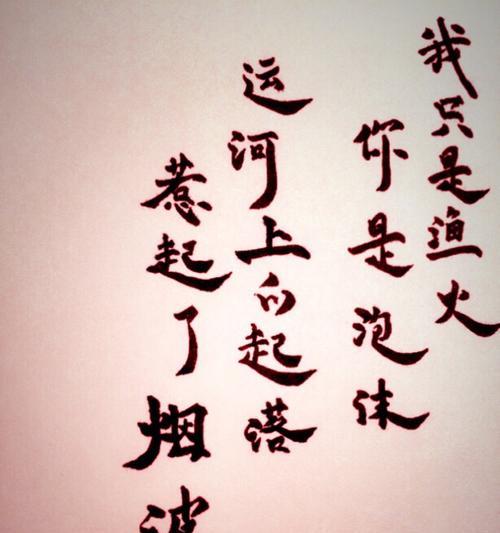 我只是渔火
你是泡沫
运河上的起落
惹起了烟波